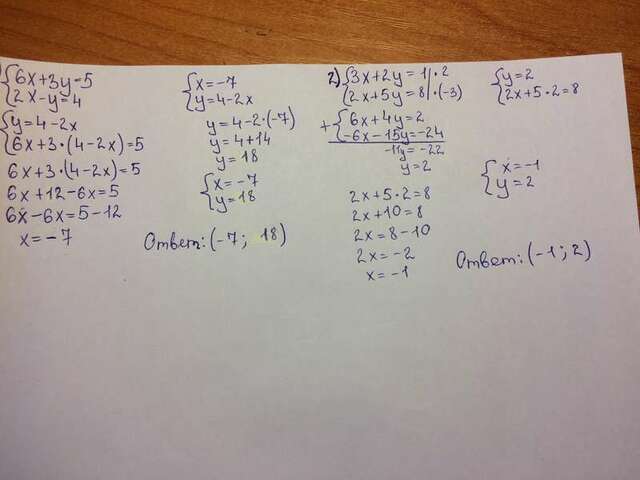 {6x+3y=5
{2x-y=4
{y=4-2x
{6x+3·(4-2x)=5
6x+3·(4-2x)=5
6x+12-6x=5
6x-6x=5-12
x=-7
{x=-7
{y=4-2x
y=4-2·(-7)
y=4+14
y=18
{x=-7
{y=18
Ответ: (-7; 18)
2) {3x+2y=1|·2
{2x+5y=8|·(-3)
+ {6x+4y=2
{-6x-15y=-24
-11y=-22
y=2
2x+5·2=8
2x+10=8
2x=8-10
2x=-2
x=-1
{y=2
{2x+5·2=8
{x=-1
{y=2
Ответ: (-1; 2)